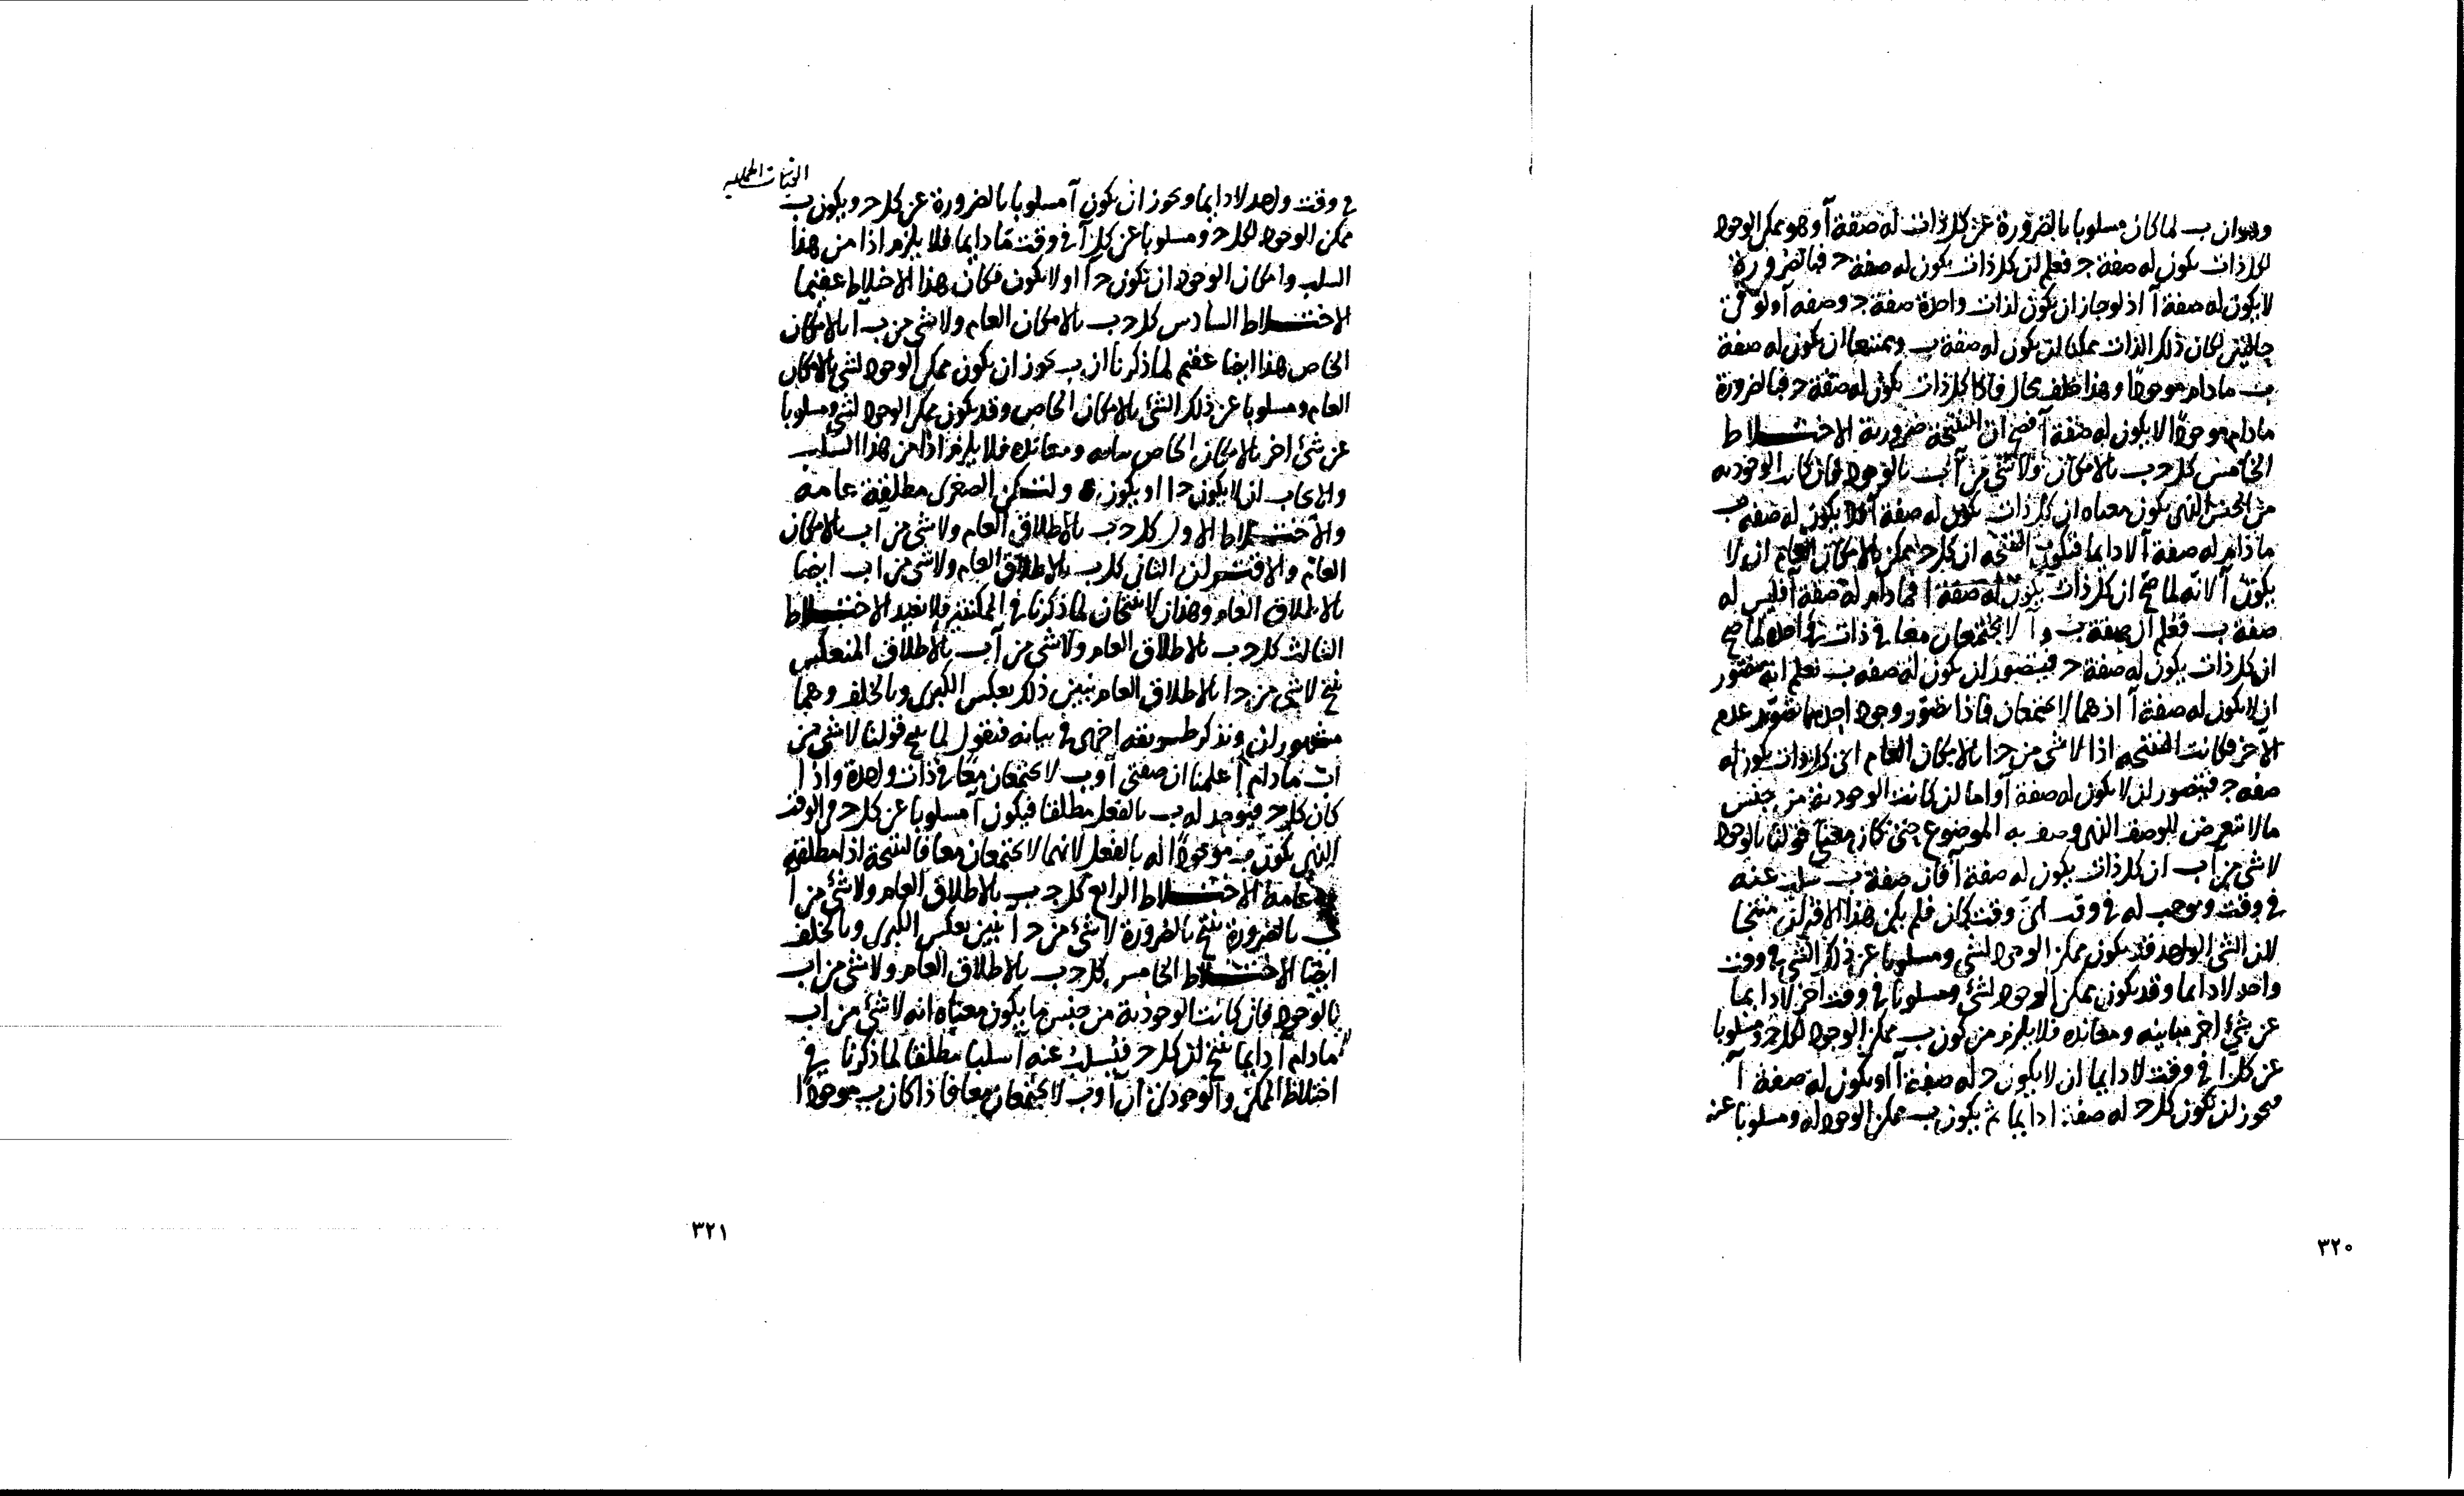 وهو ان ب لما كان مسلوبا بالضرورة عن كل ذات له صفة آ وهو ممكن الوجود
لكل ذات يكون له صفة ج فعلم ان كل ذات يكون له صفة ج فبالضرورة
لا يكون له صفة آ اذ لو جاز ان يكون لذات واحدة صفة ج وصفه آ ولو في
حالتين لكان ذلك الذات ممكنا ان يكون له صفة ب وممتنعا ان يكون له صفة
ب ما دام موجودًا وهذا خلف محال فاذا كل ذات يكون له صفة ج فبالضرورة
ما دام موجودًا لا يكون له صفة آ فصح ان النتيجة ضرورية الاختلاط
الخامس كل ج ب بالامكان ولا شي من آ ب بالوجود فان كان الوجوديه
من الجنس الذى يكون معناه ان كل ذات يكون له صفة آ فلا يكون له صفه ب
ما دام له صفة آ لا دايما فيكون النتيجه ان كل ج ممكن بالامكان العام ان لا
يكون آ لانه لما صح ان كل ذات يكون له صفة آ فما دام له صفة آ فليس له
صفة ب فعلم ان صفة ب و آ لا يجتمعان معا في ذات واحدة لما صح
ان كل ذات يكون له صفة ج فيتصور ان يكون له صفه ب نعلم انه متصور
ان لا يكون له صفة آ اذ هما لا يجتمعان فاذا تصور وجود احدهما تصور عدم
الآخر فكانت النتيجه اذا لا شي من ج ا بالامكان العام اى كل ذات يكون له
صفه ج فيتصور ان لا يكون له صفه آ واما ان كانت الوجودية من جنس
ما لا تتعرض للوصف الذى وصف به الموضوع حتى كان معنى قولنا بالوجود
لا شي من آ ب ان كل ذات يكون له صفة آ فان صفة ب تسلب عنه
في وقت وتوجب له في وقت اىّ وقت كان فلم يكن هذا الاقتران منتجا
لان الشي الواحد قد يكون ممكن الوجود لشي ومسلوبا عن ذلك الشي في وقت
واحد لا دايما وقد يكون ممكن الوجود لشي ومسلوبا في وقت آخر لا دايما
عن شيء اخر مباينه ومعانده فلا يلزم من كون ب ممكن الوجود لكل ج ومسلوبا
عن كل آ في وقت لا دايما ان لا يكون ج له صفة آ او يكون له صفة آ
فيجوز ان يكون كل ج له صفة ا دايما ثم يكون ب ممكن الوجود له ومسلوبا عنه
٣٢٠
في وقت واحد لا دايما ويجوز ان يكون آ مسلوبا بالضرورة عن كل ج ويكون ب
ممكن الوجود لكل ج ومسلوبا عن كل آ في وقت ما دايما فلا يلزم اذا من هذا
السلب وامكان الوجود ان يكون ج آ او لا يكون فكان هذا الاختلاط عقيما
الاختلاط السادس كل ج ب بالامكان العام ولا شي من ب آ بالامكان
الخاص هذا ايضا عقيم لما ذكرنا ان ب يجوز ان يكون ممكن الوجود لشي بالامكان
العام ومسلوبا عن ذلك الشئ بالامكان الخاص وقد يكون ممكن الوجود لشي ومسلوبا
عن شئ اخر بالامكان الخاص مباينه ومعانده فلا يلزم اذا من هذا السلب
والايجاب ان لا يكون ج ا او يكون ولتكن الصغرى مطلقة عامة
والاختلاط الاول كل ج ب بالاطلاق العام ولا شي من آ ب بالامكان
العام والاقتران الثاني كل ب بالاطلاق العام ولا شي من ا ب ايضا
بالاطلاق العام وهذان لا ينتجان لما ذكرنا في الممكنين فلا نعيد الاختلاط
الثالث كل ج ب بالاطلاق العام ولا شي من آ ب بالاطلاق المنعكس
ينتج لا شي من ج ا بالاطلاق العام يتبين ذلك بعكس الكبرى وبالخلف وهما
مشهوران ونذكر طريقه اخرى في بيانه فنقول لما صح قولنا لا شي من
آ ب ما دام آ علمنا ان صفتى آ وب لا يجتمعان معًا في ذات واحدة واذا
كان كل ج فيوجد له ب بالفعل مطلقا فيكون آ مسلوبا عن كل ج في الوقت
الذى يكون ب موجودًا له بالفعل لانهما لا يجتمعان معا فالنتيجة اذا مطلقه
عامة الاختلاط الرابع كل ج ب بالاطلاق العام ولا شئ من آ
ب بالضرورة ينتج بالضرورة لا شئ من ج آ يتبين بعكس الكبرى وبالخلف
ايضا الاختلاط الخامس كل ج ب بالاطلاق العام ولا شئ من ا ب
بالوجود فان كانت الوجودية من جنس ما يكون معناه انه لا شئ من ا ب
ما دام آ دايما ينتج ان كل ج فيسلب عنه آ سلبا مطلقا لما ذكرنا في
اختلاط الممكن والوجودى ان آ وب لا يجتمعان معا فاذا كان ب موجودًا
٣٢١